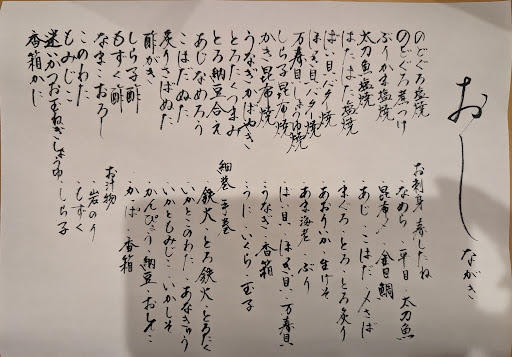 おしながき
のどぐろ塩焼
のどぐろ煮つけ
ぶりかま塩焼
太刀魚塩焼
はたはた塩焼
はい貝バター焼
ほっき貝バター焼
万寿貝しょうゆ焼
しら子昆布焼
かき昆布焼
うなぎかばやき
とろたくつまみ
とろ納豆合え
あじなめろう
こはだぬた
炙りさばぬた
酢がき
しら子酢
もずく酢
なまこおろし
このわた
もみじこ
迷いがつお玉ねぎしょうゆ
香箱かに
お刺身・寿しだね
・なめら・平目・太刀魚
・昆布〆・金目鯛
・あじ・こはだ・〆さば
・まぐろ・とろ・とろ炙り
・あおりか・生げそ
・あま海老・ぶり
・はい貝・ほっき貝・万寿貝
・うなぎ・香箱
・うに・いくら・玉子
細巻・手巻
・鉄火・とろ鉄火・とろたく
・いかとこのわた・あなきゅう
・いかともみじこ・いかしそ
・かんぴょう・納豆・おしんこ
・かっぱ・香箱
お汁物
・岩のり
・もずく
・しら子